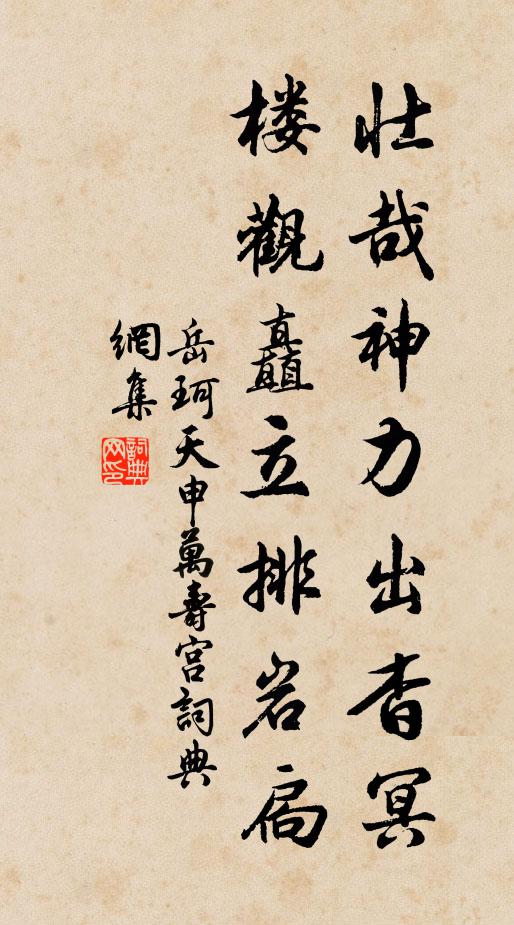 壮哉神力出杳冥
楼觀矗立排岩扃
岳珂天申萬壽宫詞典
網集
詞典网印